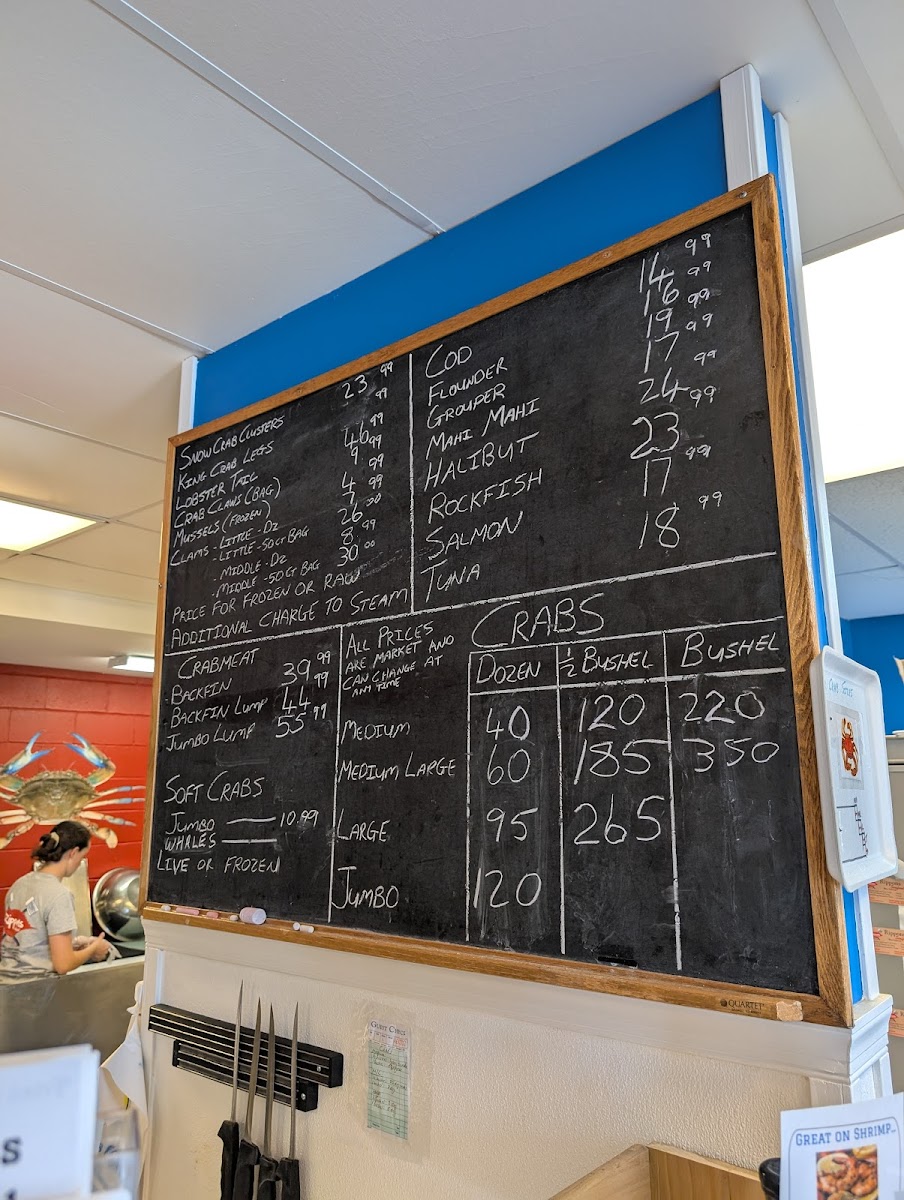 SNOW CRAB CLUSTERS 23 99
KING CRAB LEGS 99
LOBSTER TAIL 46 99
CRAB CLAWS (BAG) 9 99
MUSSELS (FROZEN) 4 99
CLAMS - LITTLE - DZ 7
- LITTLE - 50 CT BAG 26 00
- MIDDLE - DZ 8 99
- MIDDLE - 50 CT BAG 30 00
PRICE FOR FROZEN OR RAW
ADDITIONAL CHARGE TO STEAM
COD 14 99
FLOUNDER 16 99
GROUPER 19 99
MAHI MAHI 17 99
HALIBUT 24 99
ROCKFISH 23 99
SALMON 17 99
TUNA 18 99
CRABMEAT
BACKFIN 39 99
BACKFIN LUMP 44 99
JUMBO LUMP 55 99
SOFT CRABS
JUMBO — 10.99
WHALES —
LIVE OR FROZEN
ALL PRICES
ARE MARKET AND
CAN CHANGE AT
ANY TIME
CRABS
DOZEN ½ BUSHEL BUSHEL
MEDIUM 40 120 220
MEDIUM LARGE 60 185 350
LARGE 95 265
JUMBO 120
QUARTET
GUEST CHECK
GREAT ON SHRIMP